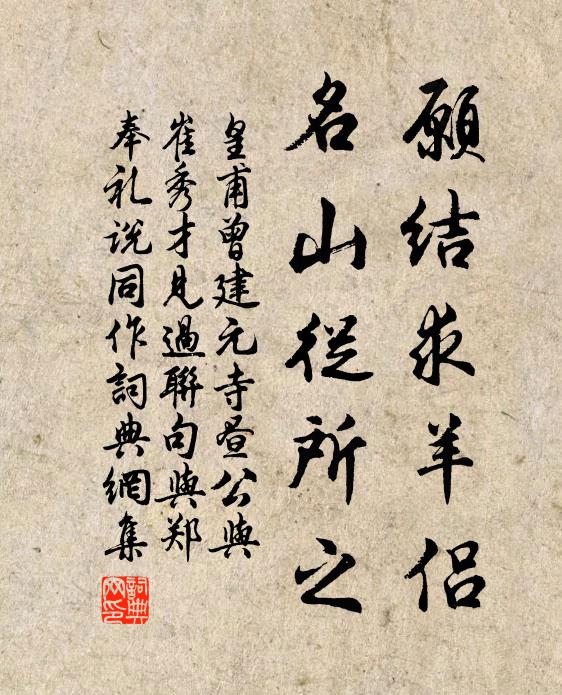 願結求羊侶
名山從所之
皇甫曾建元寺昼公與
崔秀才見過聯句與郑
奉礼说同作詞典網集
詞典网印